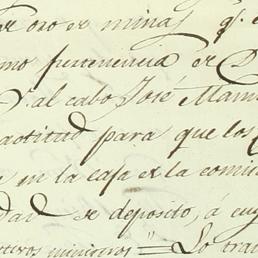 de oro de minas q.e
mo pertenencia de D
y al cabo José Mam
actitud para que los
en la caja de la comis
dad de deposito, á cuy
otivos ministros = Lo tra